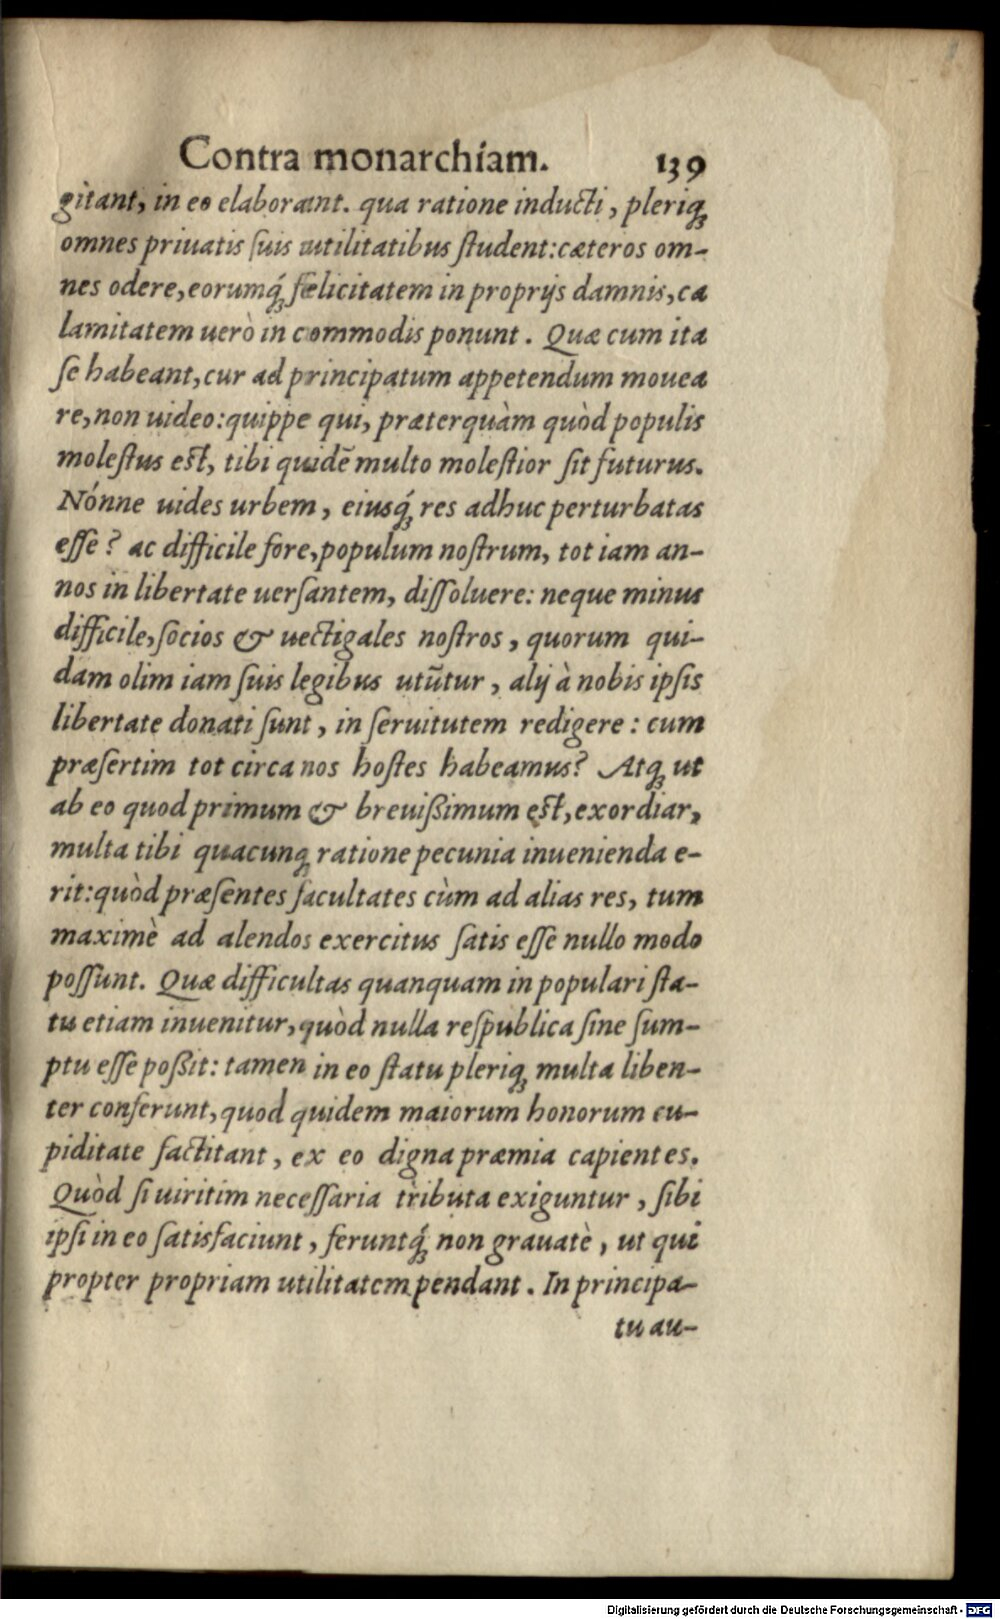 Contra monarchiam. 139
gitant, in eo elaborant. qua ratione inducti, pleriq́
omnes priuatis ſuis utilitatibus ſtudent: cæteros om-
nes odere, eorumq́; fœlicitatem in proprijs damnis, ca
lamitatem uerò in commodis ponunt. Quæ cum ita
ſe habeant, cur ad principatum appetendum mouea
re, non uideo: quippe qui, præterquàm quòd populis
moleſtus eſt, tibi quidẽ multo moleſtior ſit futurus.
Nónne uides urbem, eiusq́; res adhuc perturbatas
eſſe? ac difficile fore, populum noſtrum, tot iam an-
nos in libertate uerſantem, diſſoluere: neque minus
difficile, ſocios & uectigales noſtros, quorum qui-
dam olim iam ſuis legibus utũtur, alij à nobis ipſis
libertate donati ſunt, in ſeruitutem redigere: cum
præſertim tot circa nos hoſtes habeamus? Atq; ut
ab eo quod primum & breuißimum eſt, exordiar,
multa tibi quacunq; ratione pecunia inuenienda e-
rit: quòd præſentes facultates cùm ad alias res, tum
maximè ad alendos exercitus ſatis eſſe nullo modo
poſſunt. Quæ difficultas quanquam in populari ſta-
tu etiam inuenitur, quòd nulla reſpublica ſine ſum-
ptu eſſe poßit: tamen in eo ſtatu pleriq; multa liben-
ter conferunt, quod quidem maiorum honorum cu-
piditate factitant, ex eo digna præmia capientes.
Quòd ſi uiritim neceſſaria tributa exiguntur, ſibi
ipſi in eo ſatisfaciunt, feruntq́; non grauatè, ut qui
propter propriam utilitatem pendant. In principa-
tu au-
Digitalisierung gefördert durch die Deutsche Forschungsgemeinschaft - DFG